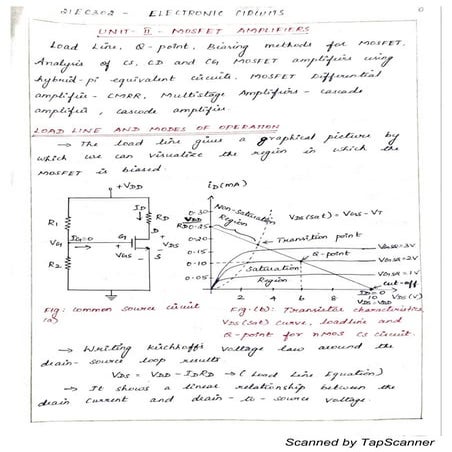 21EC202 - ELECTRONIC CIRCUITS
UNIT-II - MOSFET AMPLIFIERS
Load Line, Q-point, Biasing methods for MOSFET,
Analysis of CS, CD and CG MOSFET amplifiers using
hybrid-pi equivalent circuits, MOSFET Differential
amplifier - CMRR, Multistage Amplifiers - cascade
amplifier, cascode amplifier.
LOAD LINE AND MODES OF OPERATION
→ The load line gives a graphical picture by
which we can visualize the region in which the
MOSFET is biased.
+VDD
ID
RD
R1
VG
IG=0
G
D
+
VDS
VGS
-
S
R2
iD(mA)
0.30
VDD
RD
0.25
0.20
0.15
0.10
0.05
Non-Saturation
Region
VDS(sat) = VGS-VT
Transition point
Q-point
Saturation
Region
VGSQ=3V
VGS=2V
VGS=1V
cut-off
2
4
6
8
10
VDS(V)
ID=0
VDS=VDD
Fig: Common source circuit
(a)
Fig:(b): Transistor characteristics,
VDS(sat) curve, loadline and
Q-point for nMOS CS circuit.
→ Writing Kirchhoff's voltage law around the
drain-source loop results
VDS = VDD - IDRD → (Load Line Equation)
→ It shows a linear relationship between the
drain current and drain-to-source voltage.
Scanned by TapScanner